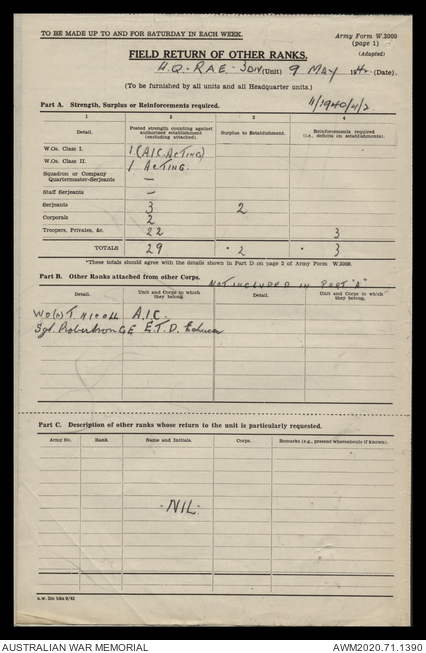 TO BE MADE UP TO AND FOR SATURDAY IN EACH WEEK.
Army Form W.3009
(page 1)
(Adapted)
FIELD RETURN OF OTHER RANKS.
H.Q. - RAE - 3 DIV (Unit) 9 MAY 194 (Date).
(To be furnished by all units and all Headquarter units.)
Part A. Strength, Surplus or Reinforcements required.
11/1940/4/2
1 2 3 4
Detail. Posted strength counting against authorized establishment (excluding attached). Surplus to Establishment. Reinforcements required (i.e., deficits on establishment).
W.Os. Class I. 1 (A.I.C. ACTING)
W.Os. Class II. 1 ACTING.
Squadron or Company Quartermaster-Serjeants —
Staff Serjeants —
Serjeants 3 2
Corporals 2
Troopers, Privates, &c. 22 3
TOTALS 29 * 2 * 3
*These totals should agree with the details shown in Part D on page 2 of Army Form W.3009.
Part B. Other Ranks attached from other Corps. NOT INCLUDED IN PART "A"
Detail. Unit and Corps to which they belong. Detail. Unit and Corps to which they belong.
T. Nicoll A.I.C.
Sgt. Robertson GE E.T.D. Educa
Part C. Description of other ranks whose return to the unit is particularly requested.
Army No. Rank. Name and Initials. Corps. Remarks (e.g., present whereabouts if known).
- NIL -
AUSTRALIAN WAR MEMORIAL AWM2020.71.1390